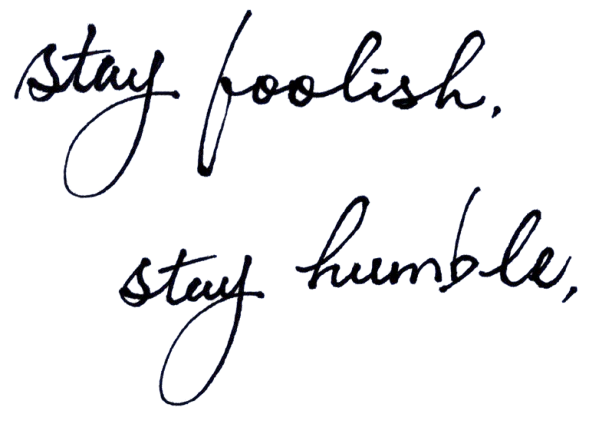 stay foolish,
stay humble,